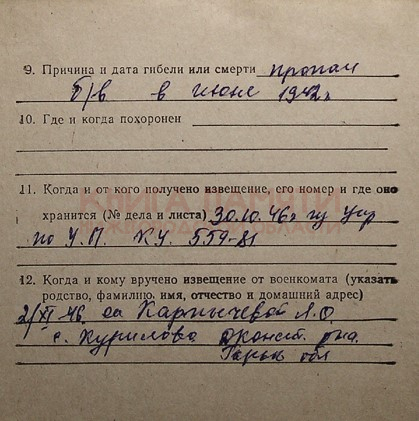 9. Причина и дата гибели или смерти пропал
б/в в июне 1942г
10. Где и когда похоронен
11. Когда и от кого получено извещение, его номер и где оно
хранится (№ дела и листа) 30.10.46г гу Упр
КНИГА ПАМЯТИ
НИЖЕГОРОДСКОЙ ОБЛАСТИ
по У.П. КУ. 559-81
12. Когда и кому вручено извещение от военкомата (указать
родство, фамилию, имя, отчество и домашний адрес)
2/XI-46. Карпычевой Л.О.
с. Курилово р-на.
Горьк обл